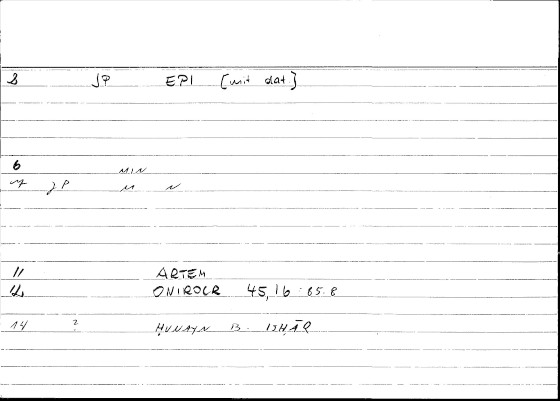 8 JP EPI [mit dat.]
6 MIN
JP M N
11 ARTEM
12 ONIROCR 45,16
14 ? ḤUNAYN B. ISḤĀQ